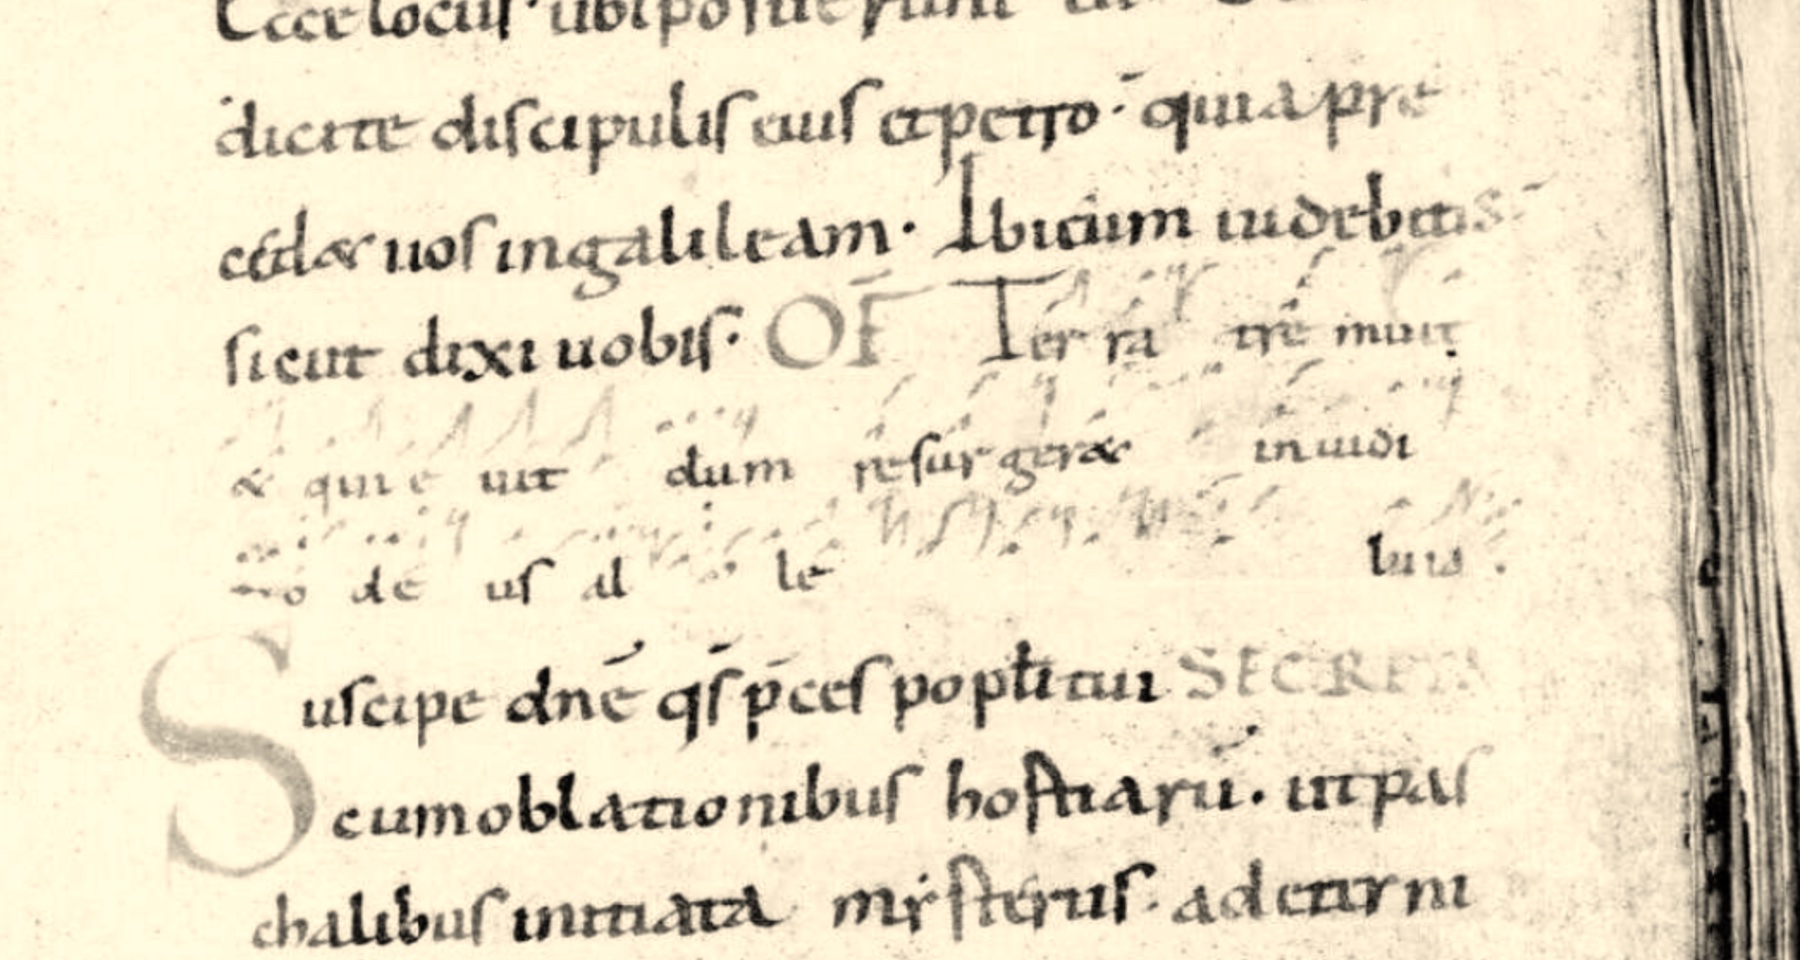 Ecce locus · ubi posuerunt
dicite discipulis eius et petro · quia pre
cedet uos in galileam · Ibi eum uidebitis
sicut dixi uobis · OF Terra tre muit
& qui e uit dum resurger& in iudi
de us al le luia .
Suscipe dnē qs p̄ces popli tui SECRETA
cum oblationibus hostiarū · ut pas
chalibus initiata mẏsteriis · ad eterni